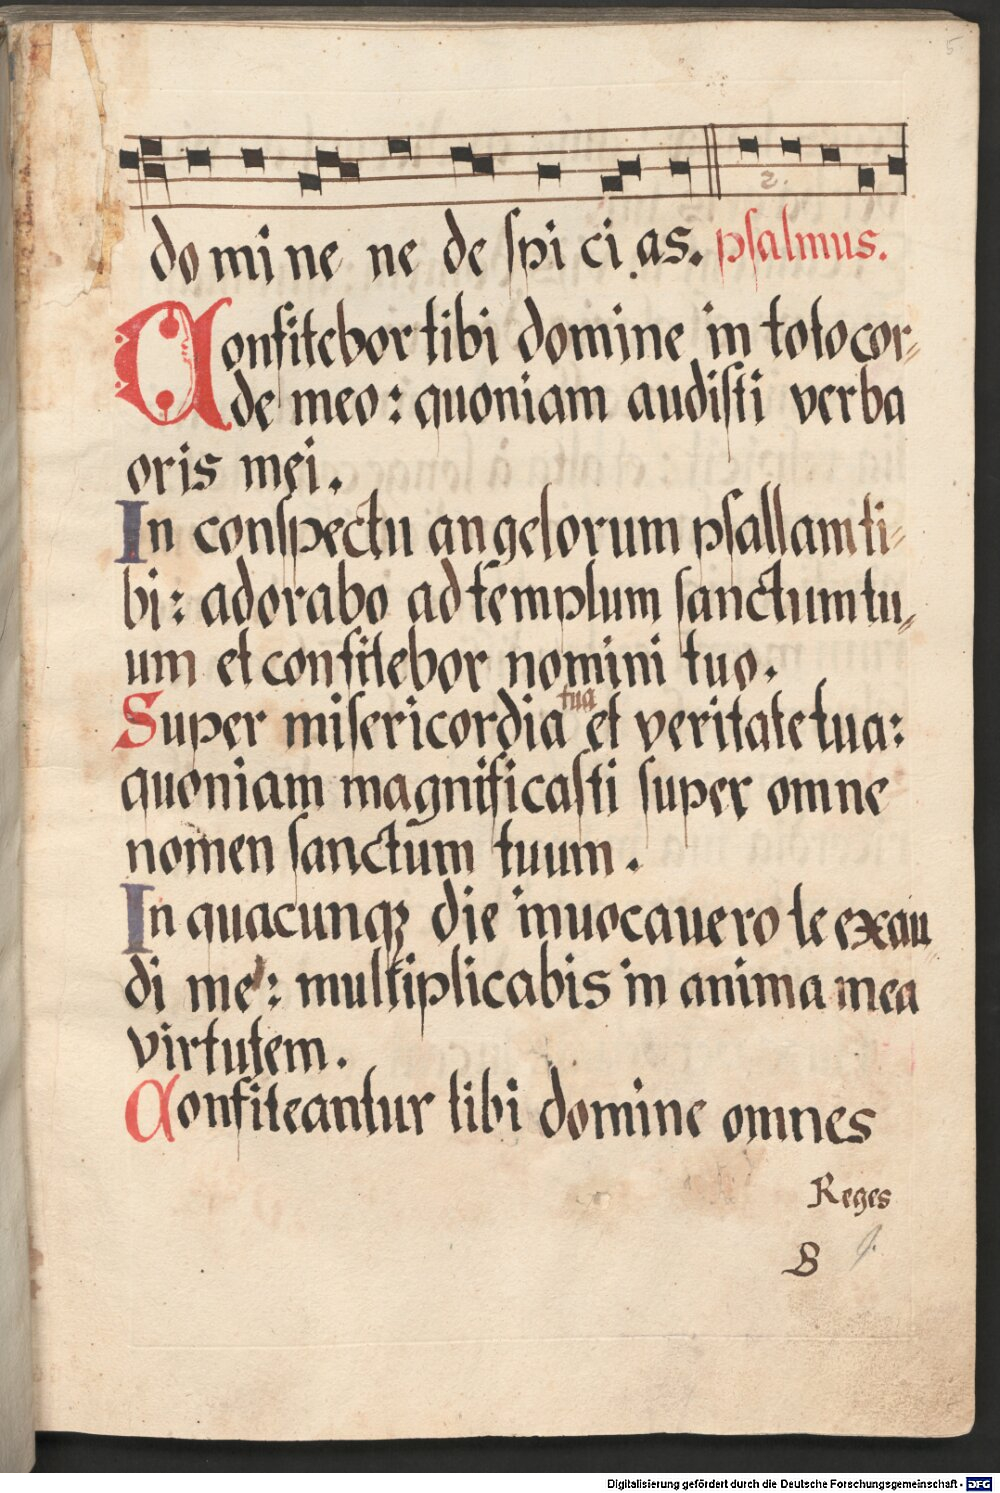 5.
2.
do mi ne ne de spi ci as. psalmus.
Confitebor tibi domine in toto cor-
de meo: quoniam audisti verba
oris mei.
In conspectu angelorum psallam ti-
bi: adorabo ad templum sanctum tu-
um et confitebor nomini tuo.
tua
Super misericordia et veritate tua:
quoniam magnificasti super omne
nomen sanctum tuum.
In quacunqꝫ die inuocauero te exau-
di me: multiplicabis in anima mea
virtutem.
Confiteantur tibi domine omnes
Reges
B
Digitalisierung gefördert durch die Deutsche Forschungsgemeinschaft - DFG